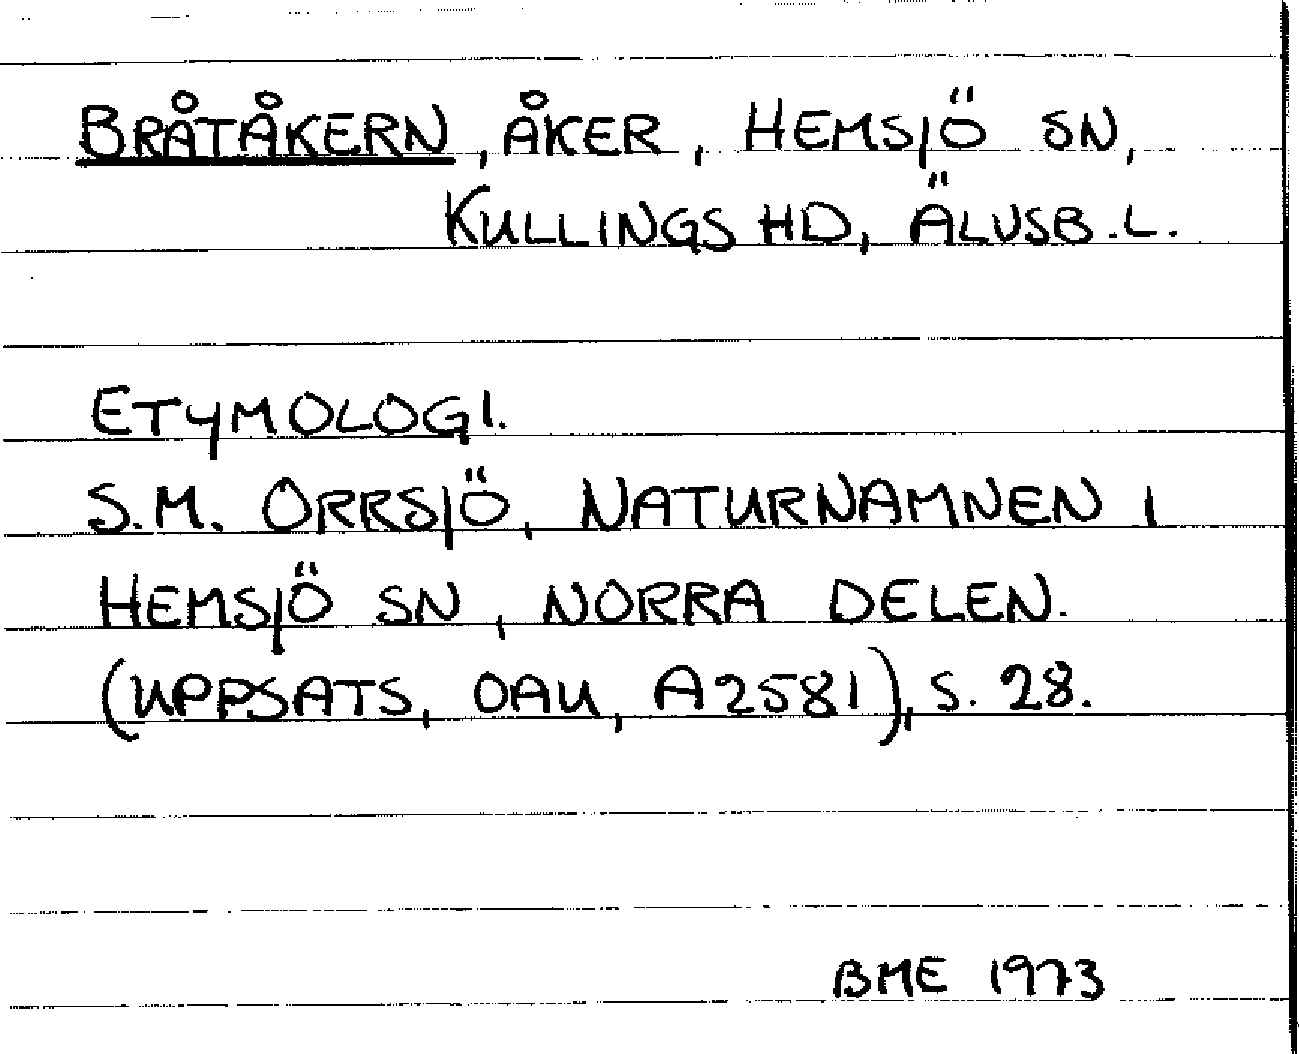 BRÅTÅKERN, ÅKER, HEMSJÖ SN,
KULLINGS HD, ÄLVSB.L.
ETYMOLOGI.
S.M. ORRSJÖ, NATURNAMNEN I
HEMSJÖ SN, NORRA DELEN.
(UPPSATS, OAU, A2581), S. 28.
BME 1973